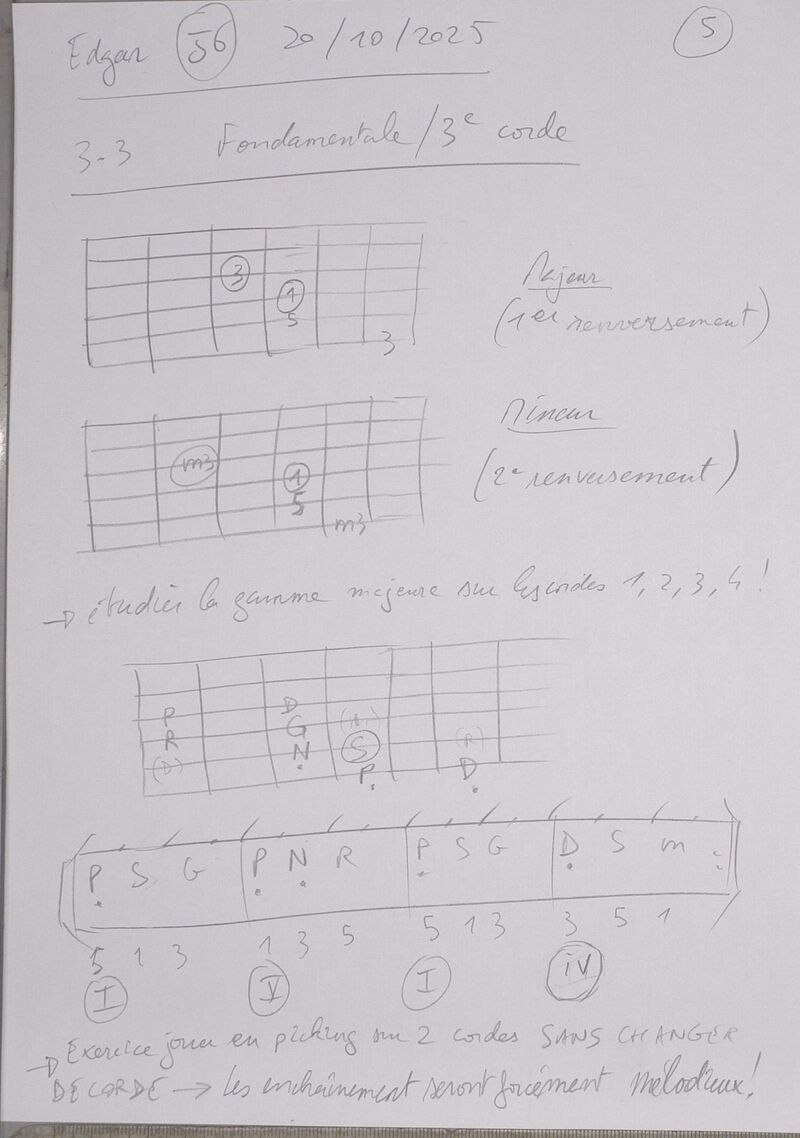 Edgar 56 20/10/2025 5
3-3 Fondamentale/3e corde
3
1
5
3
Majeur
(1er renversement)
m3
1
5
m3
Mineur
(2e renversement)
→ étudier la gamme majeure sur les cordes 1, 2, 3, 4 !
P D
R G S (R)
(D) N P D
P S G P N R P S G D S m
5 1 3 1 3 5 5 1 3 3 5 1
I V I iv
→ Exercice jouer en picking sur 2 cordes SANS CHANGER
DE CORDE → les enchaînement seront forcément mélodieux!